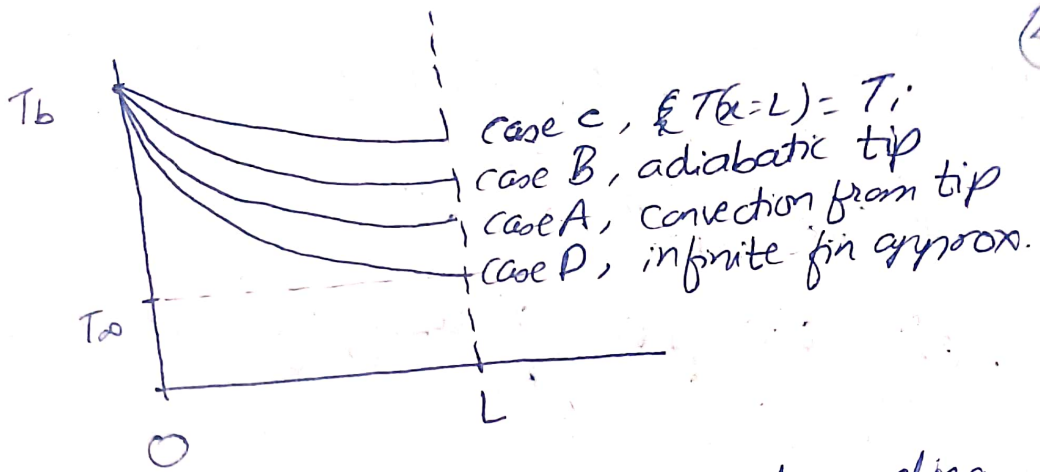 Tb
case C, T(x=L) = Ti
case B, adiabatic tip
case A, convection from tip
case D, infinite fin approx.
T∞
L
O